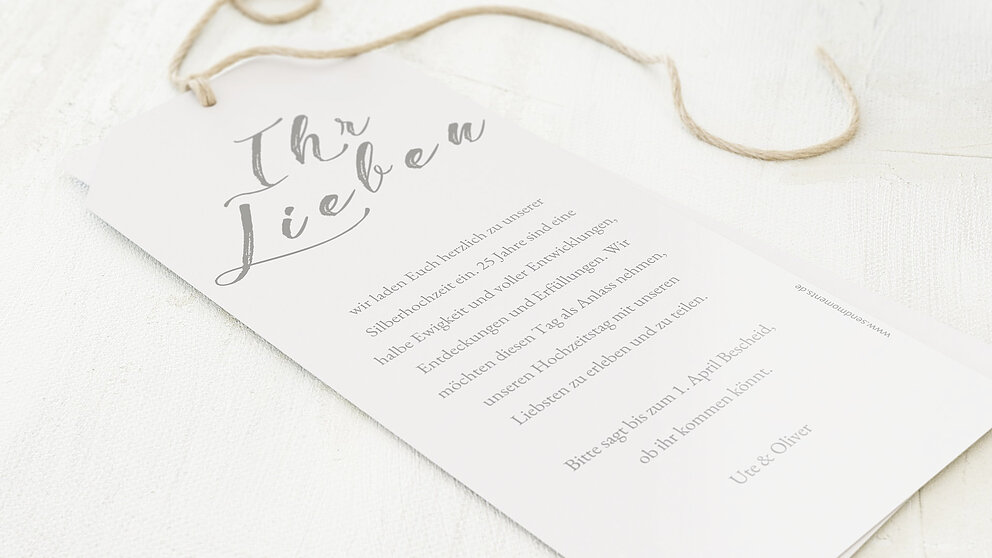 Ihr
Lieben
wir laden Euch herzlich zu unserer
Silberhochzeit ein. 25 Jahre sind eine
halbe Ewigkeit und voller Entwicklungen,
Entdeckungen und Erfüllungen. Wir
möchten diesen Tag als Anlass nehmen,
unseren Hochzeitstag mit unseren
Liebsten zu erleben und zu teilen.
Bitte sagt bis zum 1. April Bescheid,
ob ihr kommen könnt.
Ute & Oliver
www.sendmoments.de